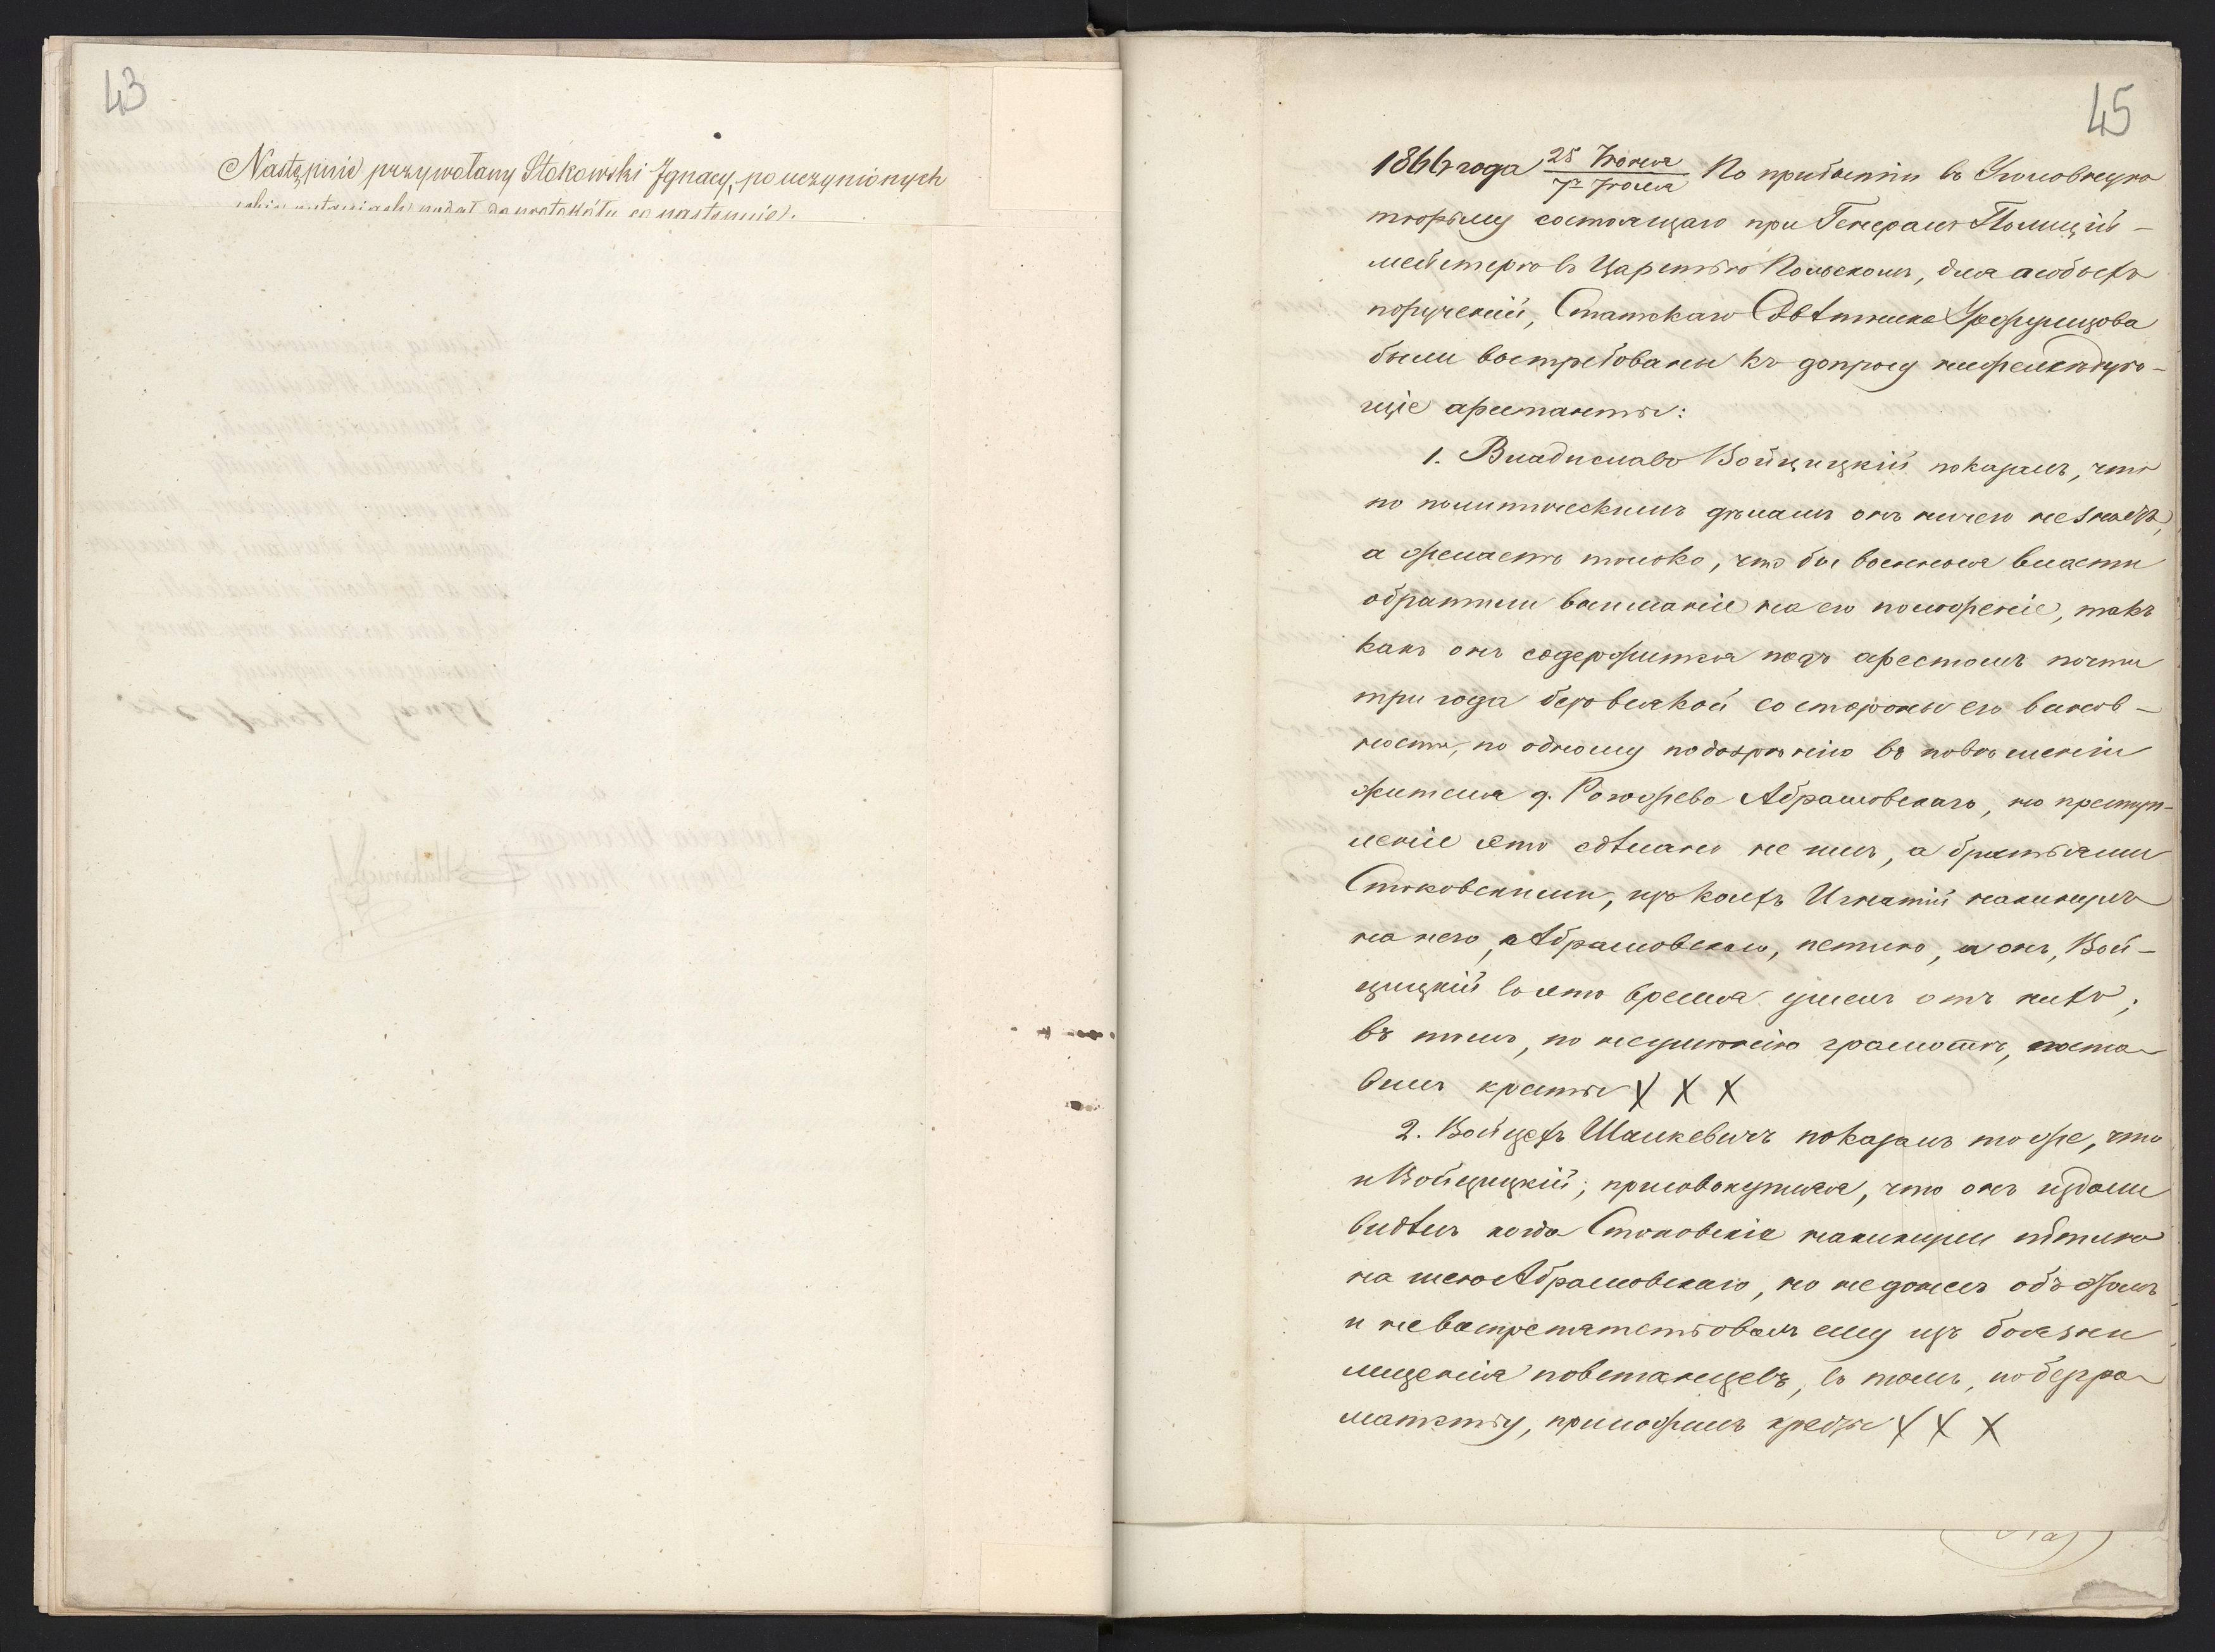 43
Następnie przywołany Stokowski Ignacy, po uczynionych
sobie pytaniach podał do protokółu co następuje.
45
1866 года 25 Іюня / 7го Іюля По прибытіи въ Уголовную
тюрьму состоящаго при Генералъ Полицій-
мейстерѣ въ Царствѣ Польскомъ, для особыхъ
порученій, Статскаго Совѣтника
были востребованы къ допросу нижеслѣдую-
щіе арестанты:
1. Владиславъ Войцицкій показалъ, что
по политическимъ дѣламъ онъ ничего не знаетъ,
а желаетъ только, что бы военныя власти
обратили вниманіе на его положеніе, такъ
какъ онъ содержится подъ арестомъ почти
три года безъ всякой со стороны его винов-
ности, по одному подозрѣнію въ повѣшеніи
жителя д. Рогожево Абрамовскаго, но преступ-
леніе это сдѣлано не имъ, а братьями
Стоковскими, изъ коихъ Игнатій накинулъ
на него, Абрамовскаго, петлю, а онъ, Вой-
цицкій въ это время ушелъ отъ нихъ;
въ томъ, по неумѣнію грамотѣ, поста-
вилъ кресты X X X
2. Войцехъ Шалкевичъ показалъ тоже, что
и Войцицкій; присовокупляя, что онъ издали
видѣлъ когда Стоковскіе накинули пѣтлю
на шею Абрамовскаго, но не донесъ объ этомъ
и не воспрепятствовалъ ему изъ боязни
мщенія повстанцевъ, въ томъ, по безгра-
мотству, приложилъ кресты X X X